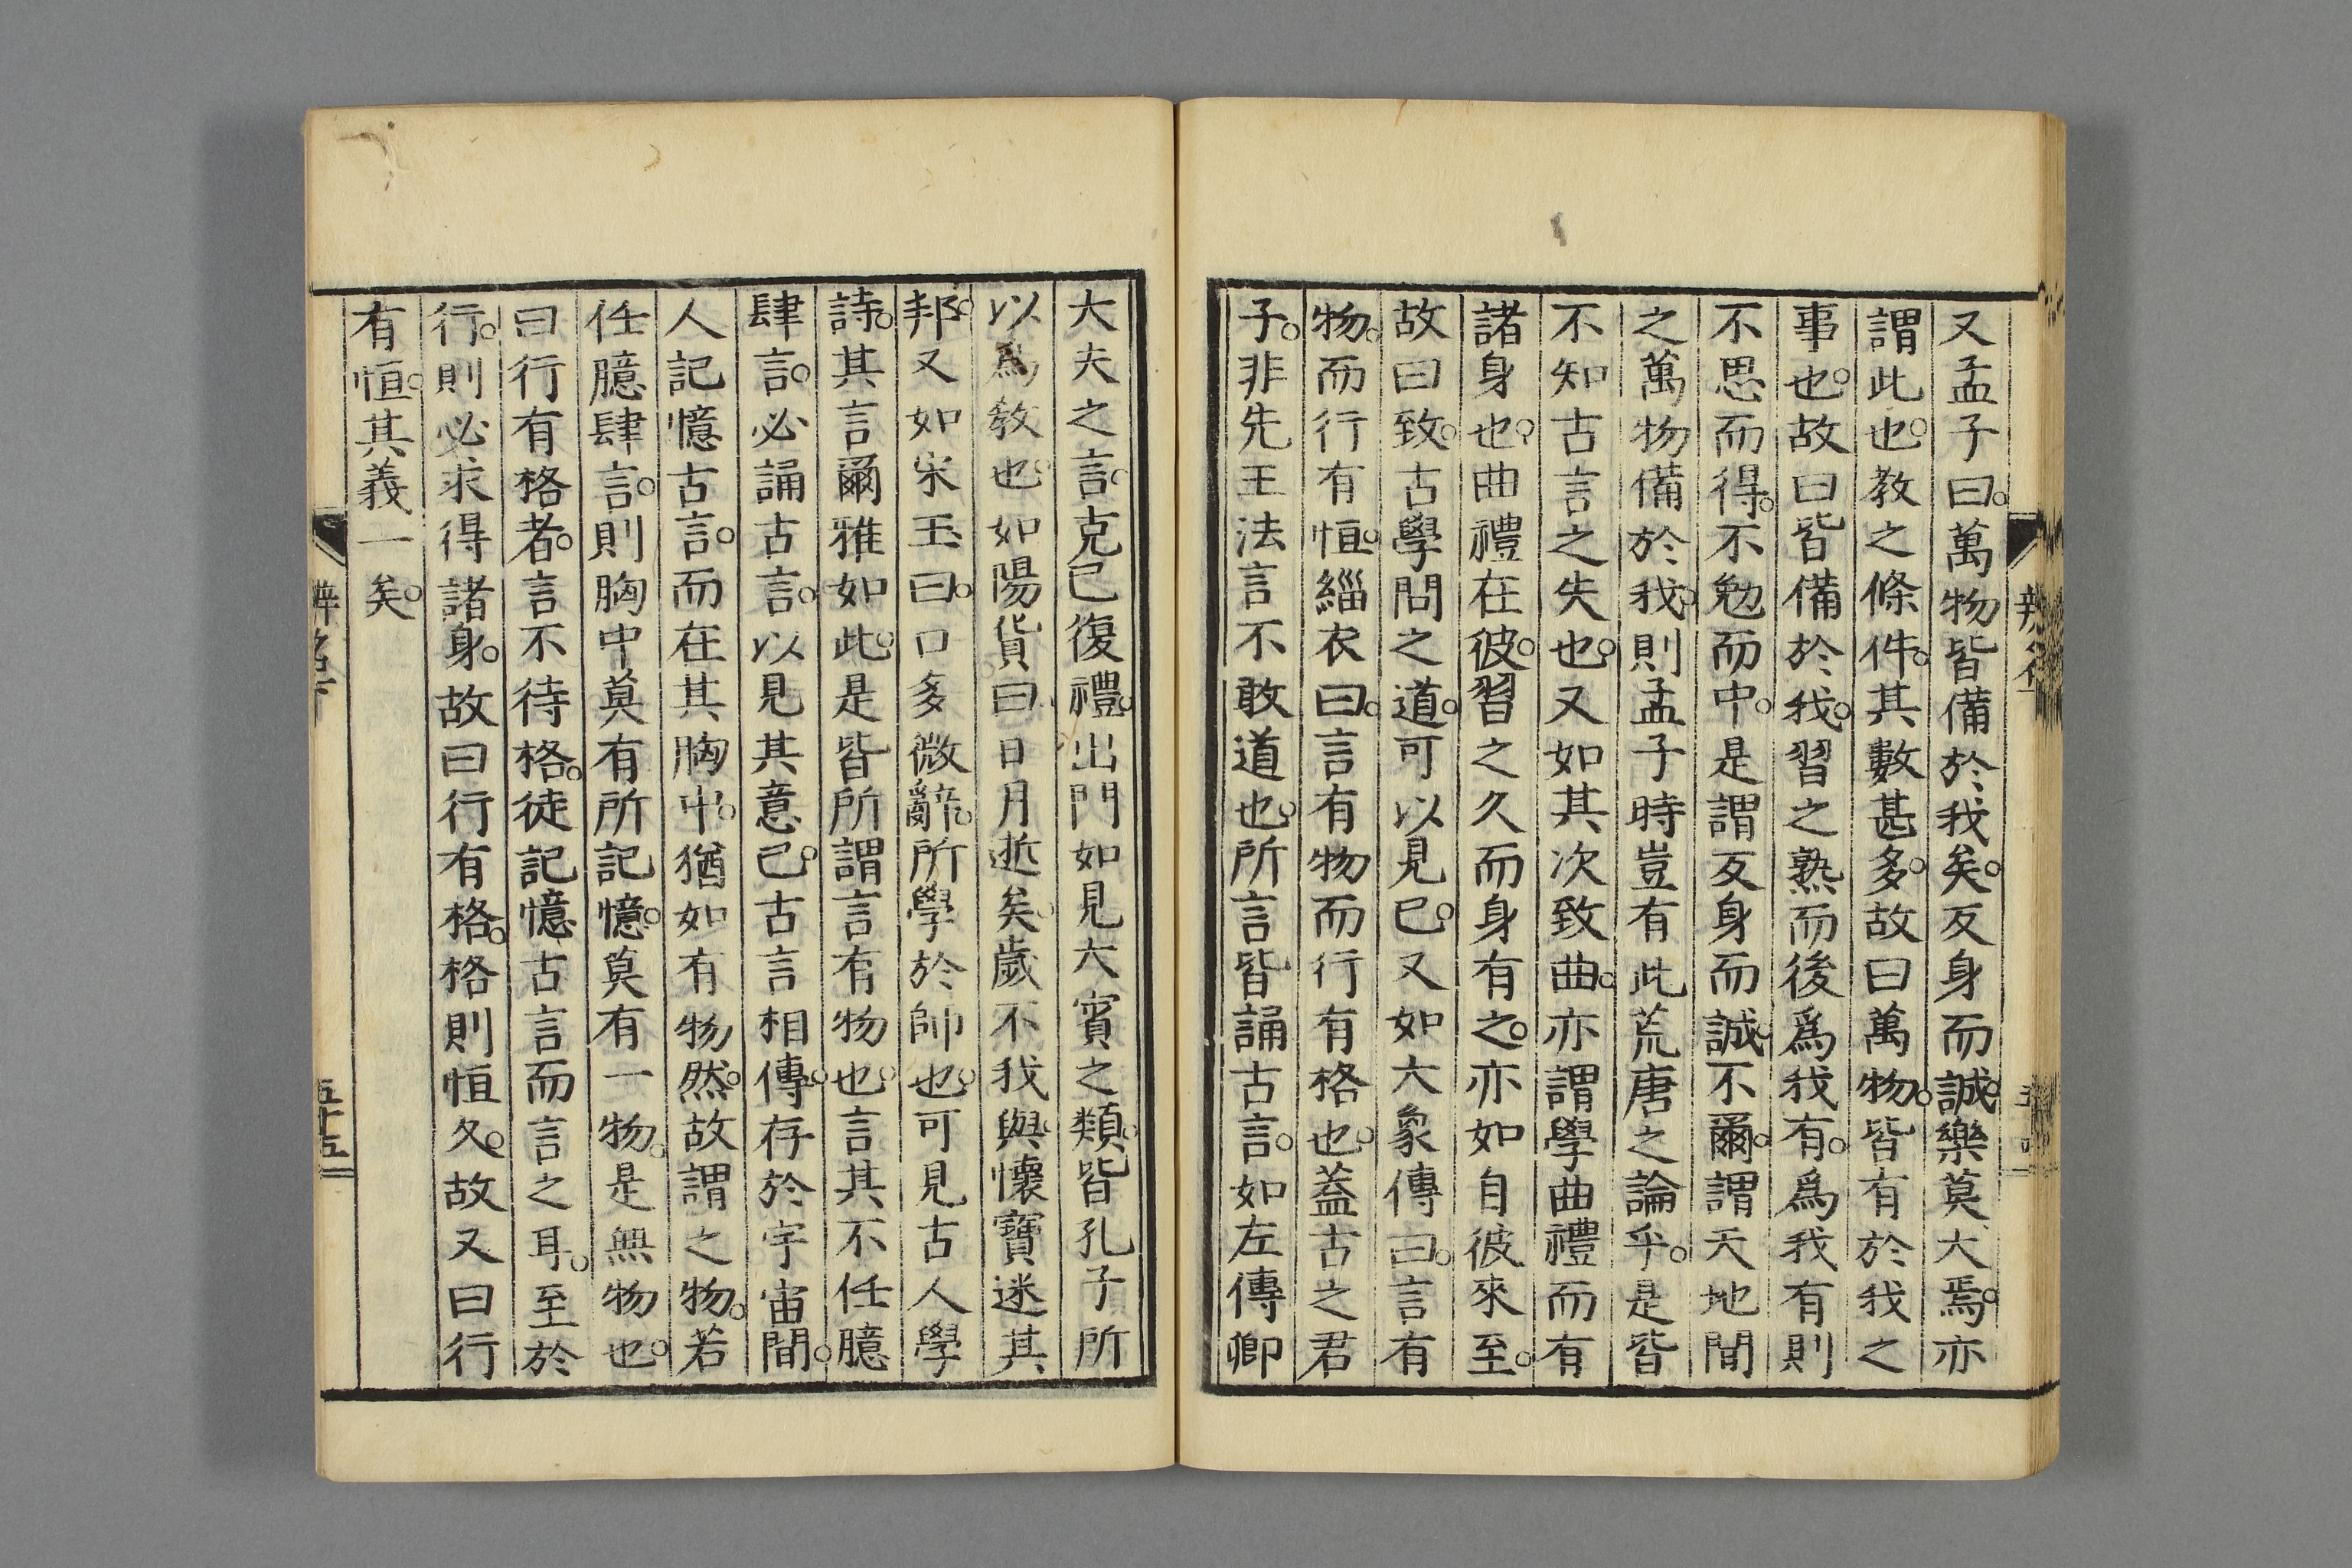 又孟子曰。萬物皆備於我矣。反身而誠。樂莫大焉。亦
謂此也。教之條件。其數甚多。故曰萬物。皆有於我之
事也。故曰皆備於我。習之熟而後爲我有。爲我有則
不思而得。不勉而中。是謂反身而誠。不爾。謂天地間
之萬物備於我。則孟子時豈有此荒唐之論乎。是皆
不知古言之失也。又如其次致曲。亦謂學曲禮而有
諸身也。曲禮在彼。習之久而身有之。亦如自彼來至。
故曰致。古學問之道。可以見已。又如大象傳曰。言有
物。而行有恒。緇衣曰。言有物而行有格也。蓋古之君
子。非先王法言不敢道也。所言皆誦古言。如左傳卿
大夫之言。克己復禮。出門如見大賓之類。皆孔子所
以爲教也。如陽貨曰。日月逝矣。歲不我與。懷寶迷其
邦。又如宋玉曰。口多微辭。所學於師也。可見古人學
詩。其言爾雅如此。是皆所謂言有物也。言其不任臆
肆言。必誦古言。以見其意已。古言相傳。存於宇宙間。
人記憶古言。而在其胸中。猶如有物然。故謂之物。若
任臆肆言。則胸中莫有所記憶。莫有一物。是無物也。
曰行有格者。言不待格。徒記憶古言而言之耳。至於
行。則必求得諸身。故曰行有格。格則恒久。故又曰行
有恒。其義一矣。
辨名下
五十五